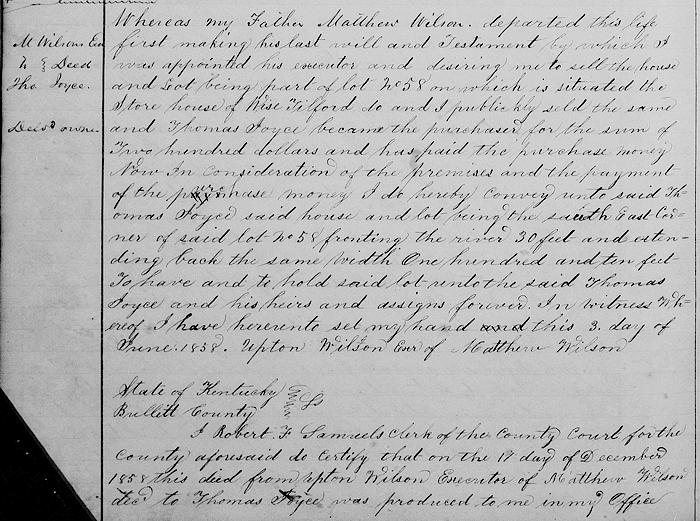 M Wilsons Exr
To } Deed
Tho Joyce.
Deld owner
Whereas my Father Matthew Wilson. departed this life
first making his last will and Testament by which I
was appointed his executor and desiring me to sell the house
and Lot being part of lot No 58 on which is situated the
Store house of Wise Tilford do and I publickly sold the same
and Thomas Joyce became the purchaser for the sum of
Two hundred dollars and has paid the purchase money
Now In consideration of the premises and the payment
of the purchase money I do hereby convey unto said Th-
omas Joyce said house and lot being the south East Cor=
ner of said lot No 58 fronting the river 30 feet and exten-
ding back the same width One hundred and ten feet
To have and to hold said lot unto the said Thomas
Joyce and his heirs and assigns forever. In witness Wh=
ereof I have hereunto set my hand and this 3. day of
June. 1858. Upton Wilson Exr of Matthew Wilson
State of Kentucky
Bullitt County
I Robert. F Samuels Clerk of the County Court for the
County aforesaid do Certify that on the 17 day of December
1858 this died from Upton Wilson Executor of Matthew Wilson
decd to Thomas Joyce was produced to me in my Office